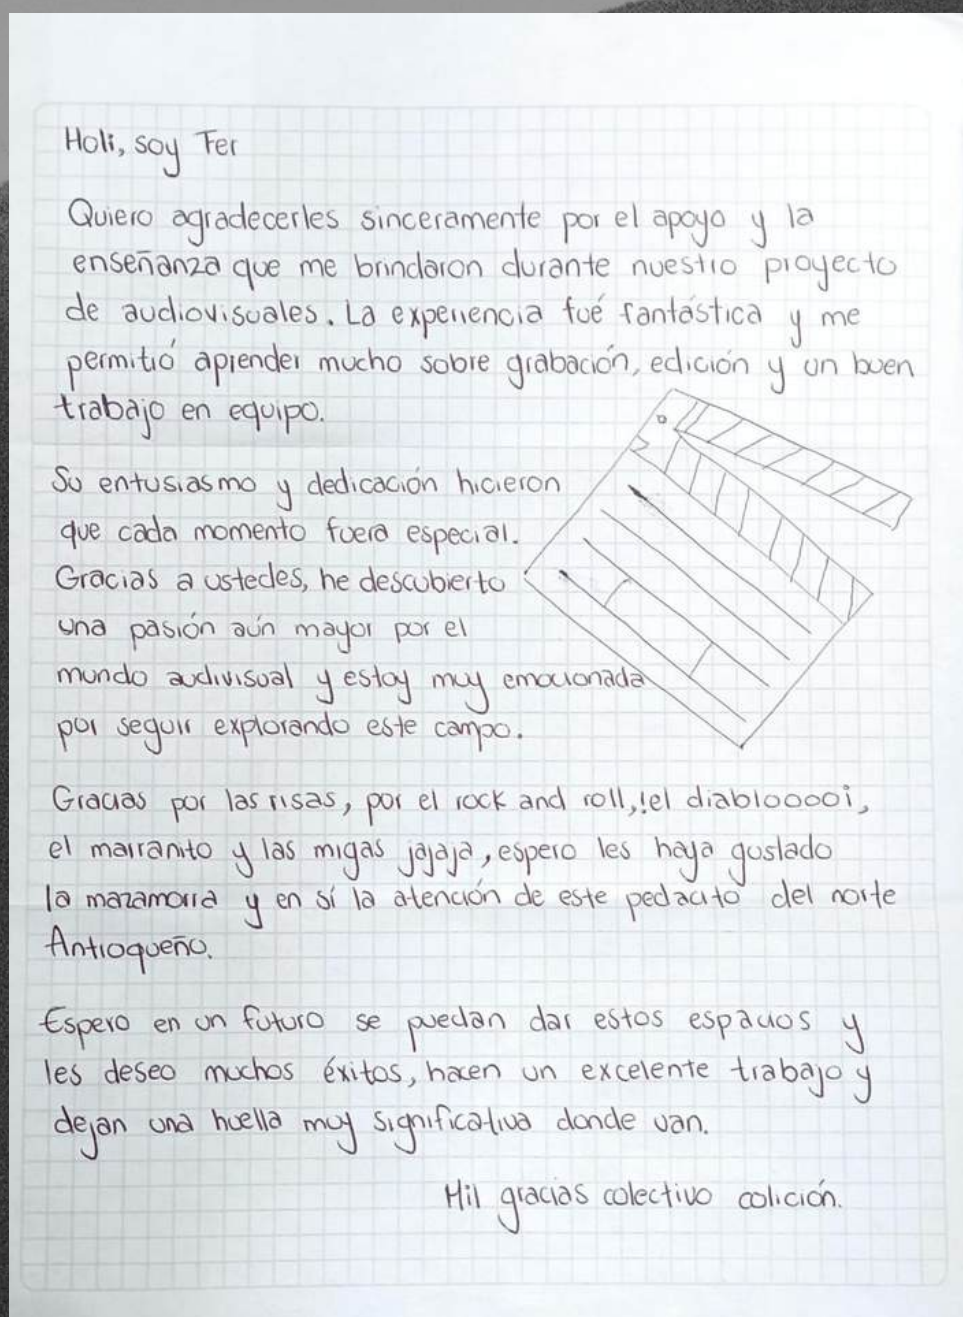 Holi, soy Fer
Quiero agradecerles sinceramente por el apoyo y la
enseñanza que me brindaron durante nuestro proyecto
de audiovisuales. La experiencia fué fantástica y me
permitió aprender mucho sobre grabación, edición y un buen
trabajo en equipo.
Su entusiasmo y dedicación hicieron
que cada momento fuera especial.
Gracias a ustedes, he descubierto
una pasión aún mayor por el
mundo audivisual y estoy muy emocionada
por seguir explorando este campo.
Gracias por las risas, por el rock and roll, ¡el diabloooo¡,
el marranito y las migas jajaja, espero les haya gustado
la mazamorra y en sí la atención de este pedacito del norte
Antioqueño.
Espero en un futuro se puedan dar estos espacios y
les deseo muchos éxitos, hacen un excelente trabajo y
dejan una huella muy significativa donde van.
Mil gracias colectivo colición.